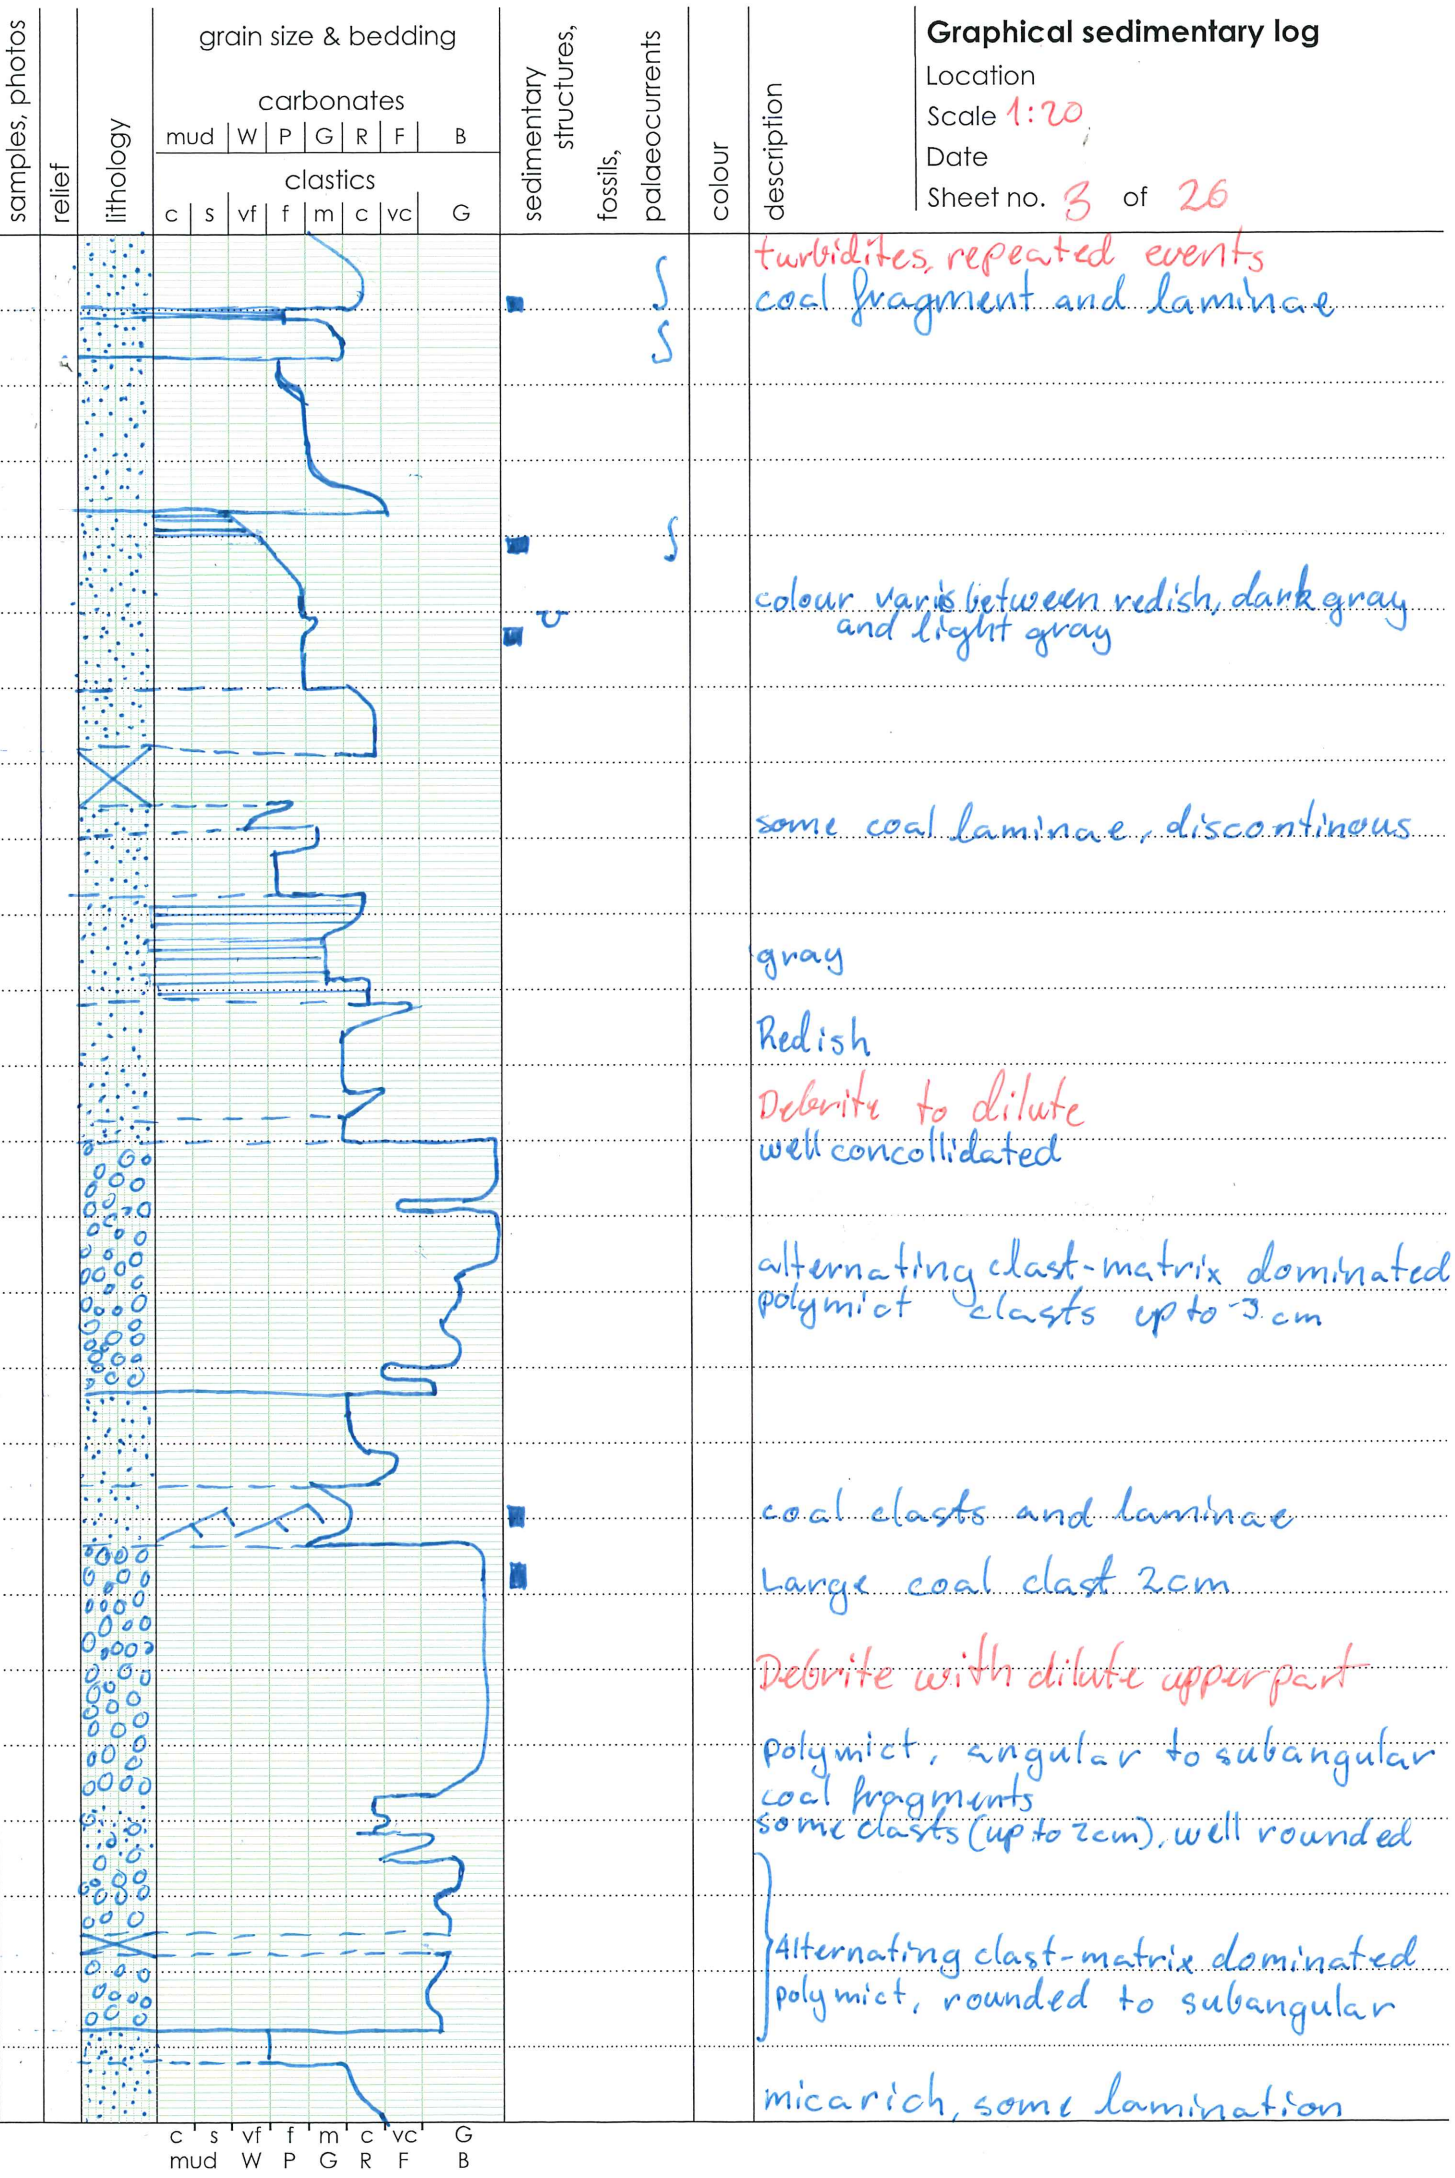 samples, photos
relief
lithology
grain size & bedding
carbonates
mud W P G R F B
clastics
c s vf f m c vc G
sedimentary
structures,
fossils,
palaeocurrents
colour
description
Graphical sedimentary log
Location
Scale 1:20
Date
Sheet no. 3 of 26
turbidites, repeated events
coal fragment and laminae
colour varis between redish, dark gray
and light gray
some coal laminae, discontinous
gray
Redish
Debrite to dilute
well concollidated
alternating clast-matrix dominated
polymict clasts up to ~3 cm
coal clasts and laminae
Large coal clast 2cm
Debrite with dilute upper part
polymict, angular to subangular
coal fragments
some clasts (up to 2cm), well rounded
Alternating clast-matrix dominated
polymict, rounded to subangular
mica rich, some lamination
c s vf f m c vc G
mud W P G R F B